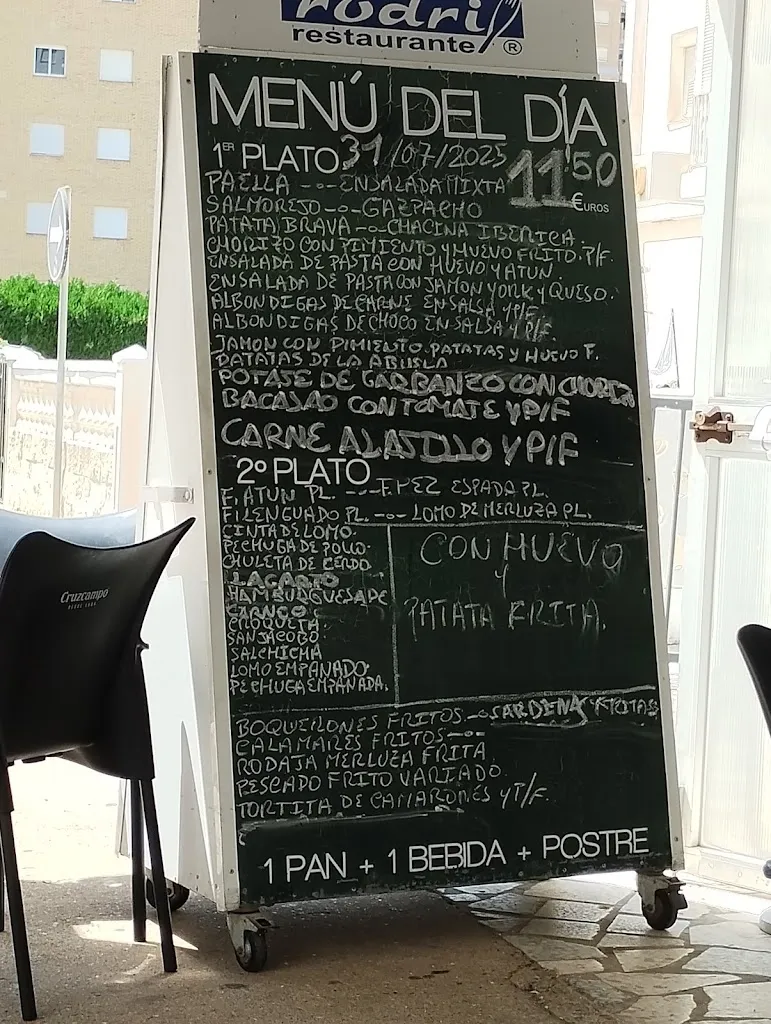 rodri
restaurante ®
MENÚ DEL DÍA
1ER PLATO 31/07/2025 11'50 €UROS
PAELLA -o- ENSALADA MIXTA
SALMOREJO -o- GAZPACHO
PATATA BRAVA -o- CHACINA IBERICA.
CHORIZO CON PIMIENTO Y HUEVO FRITO. P/F.
ENSALADA DE PASTA CON HUEVO Y ATUN.
ENSALADA DE PASTA CON JAMON YORK Y QUESO.
ALBONDIGAS DE CARNE EN SALSA Y P/F.
ALBONDIGAS DE CHOCO EN SALSA Y P/F.
JAMON CON PIMIENTO. PATATAS Y HUEVO F.
PATATAS DE LA ABUELA
POTAJE DE GARBANZO CON CHORIZO
BACALAO CON TOMATE Y P/F
CARNE AL ASTILLO Y P/F
2º PLATO
F. ATUN PL. --- F. PEZ ESPADA PL.
F. LENGUADO PL. -o- LOMO DE MERLUZA PL.
CINTA DE LOMO.
PECHUGA DE POLLO.
CHULETA DE CERDO
LAGARTO
HAMBURGUESA DE
CROQUETA.
SAN JACOBO.
SALCHICHA
LOMO EMPANADO.
PECHUGA EMPANADA.
CON HUEVO
Y
PATATA FRITA.
BOQUERONES FRITOS. -o- SARDINAS FRITAS
CALAMARES FRITOS -o-
RODAJA MERLUZA FRITA
PESCADO FRITO VARIADO.
TORTITA DE CAMARONES Y P/F.
1 PAN + 1 BEBIDA + POSTRE
Cruzcampo
DESDE 1904